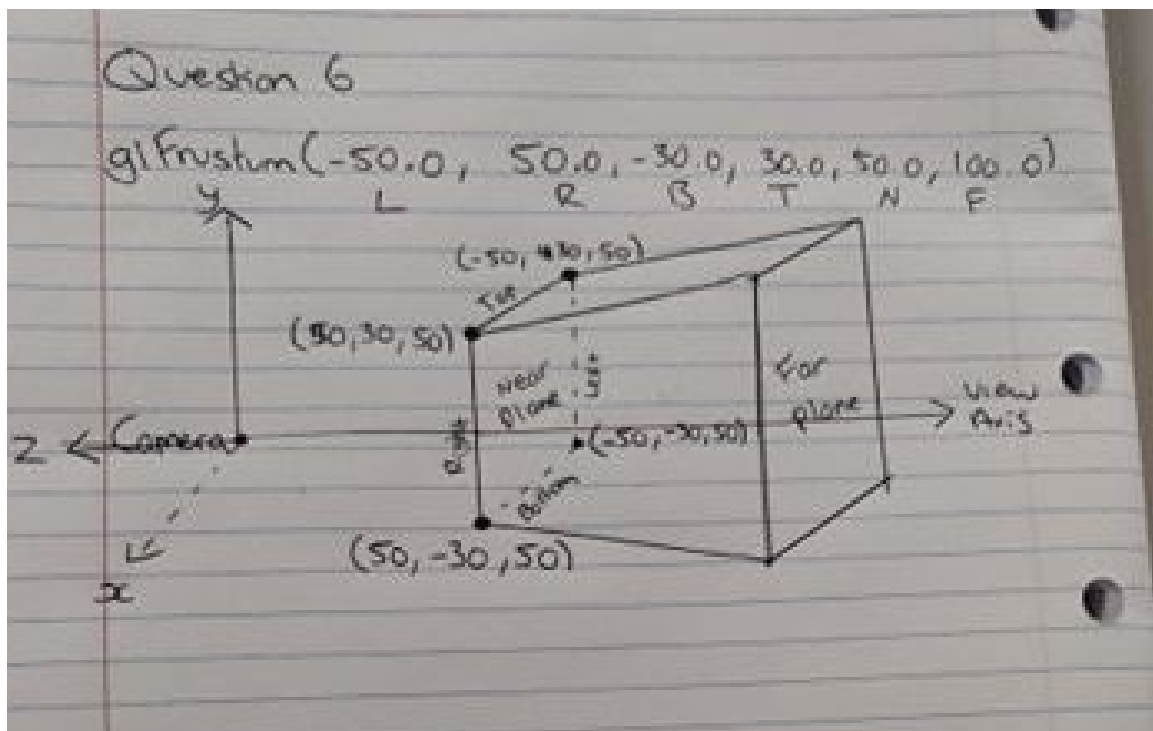 Question 6
glFrustum(-50.0, 50.0, -30.0, 30.0, 50.0, 100.0)
y L R B T N F
(-50, 30, 50)
Top
(50,30,50)
Near
Plane
Left
Far
plane
View
Axis
Z Camera
Right
(-50,-30,50)
Bottom
(50, -30, 50)
x